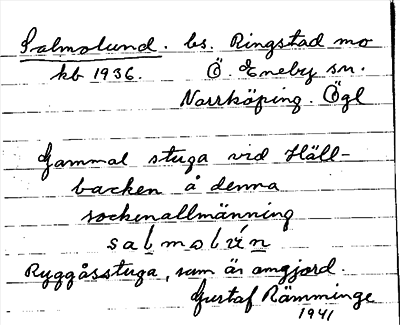 Salmolund. bs. Ringstad mo
kb 1936. Ö. Eneby sn.
Norrköping. Ögl
Gammal stuga vid Häll-
backen å denna
sockenallmänning
salmolún
Ryggåsstuga, som är omgjord.
Gustaf Rämminge
1941